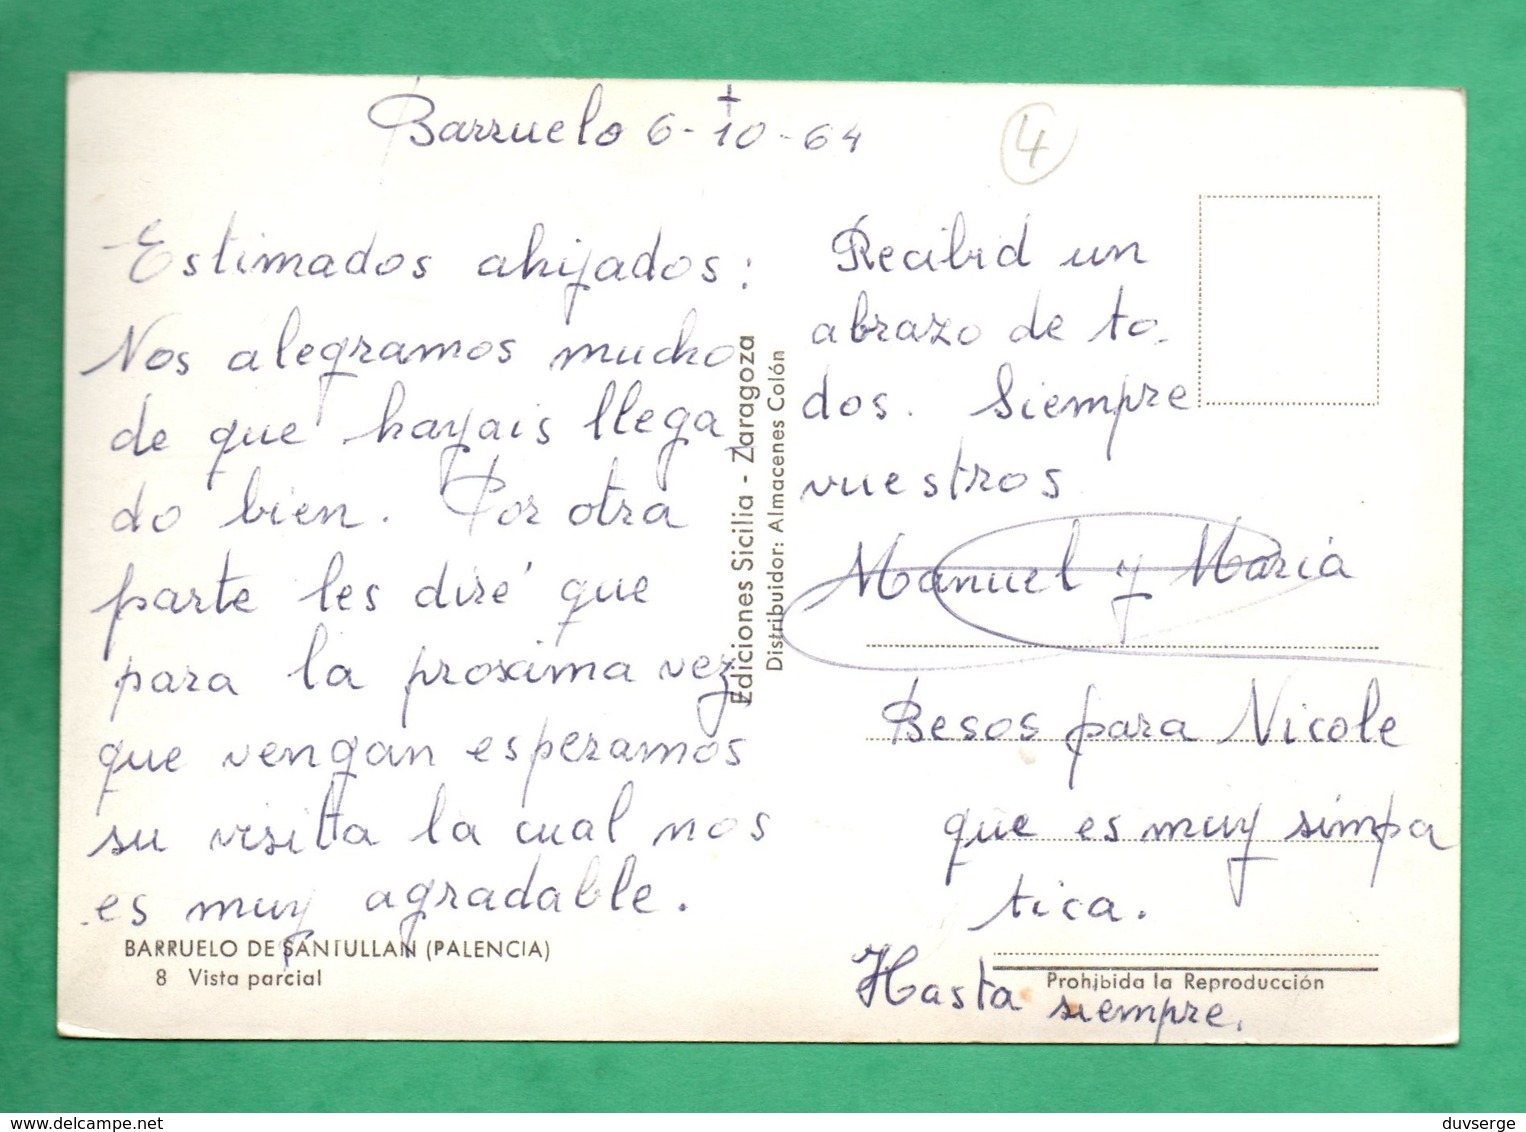 Barruelo 6-10-64
4
Estimados ahijados:
Nos alegramos mucho
de que hayais llega
do bien. Por otra
parte les diré que
para la proxima vez
que vengan esperamos
su visita la cual nos
es muy agradable.
BARRUELO DE SANTULLAN (PALENCIA)
8 Vista parcial
Ediciones Sicilia - Zaragoza
Distribuidor: Almacenes Colón
Recibid un
abrazo de to-
dos. Siempre
vuestros
Manuel y María
Besos para Nicole
que es muy simpa
tica.
Hasta siempre.
Prohibida la Reproducción
www.delcampe.net
duvserge